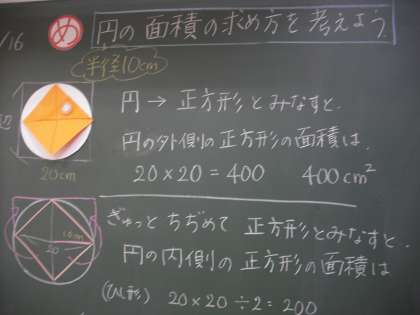 /16 め 円の面積の求め方を考えよう
半径10cm
円→正方形とみなすと.
円の外側の正方形の面積は.
20×20=400 400cm²
20cm
ぎゅっとちぢめて正方形とみなすと.
円の内側の正方形の面積は
10cm
20
(ひし形) 20×20÷2=200